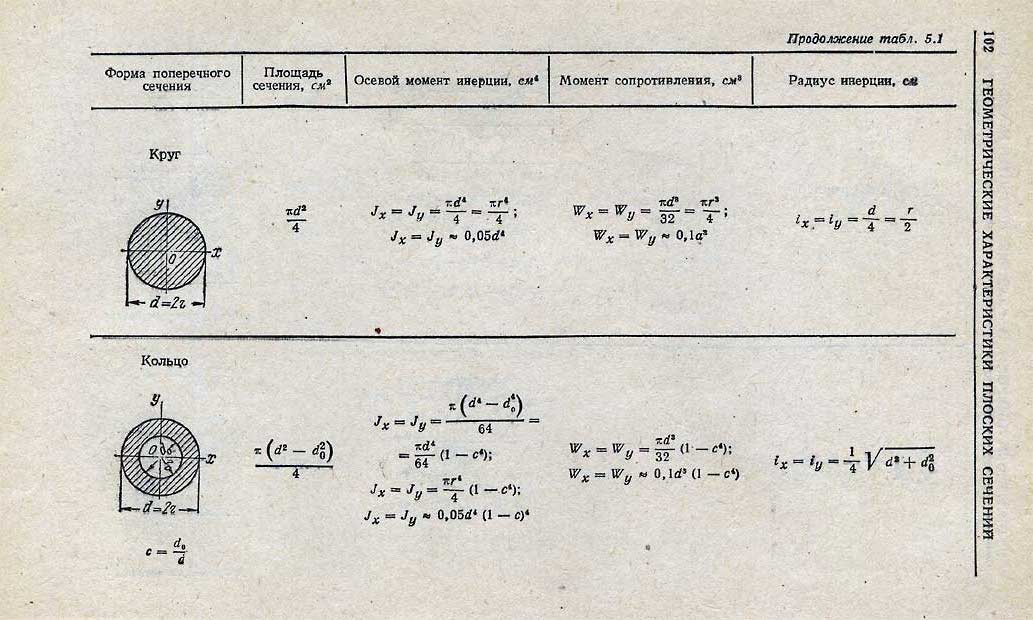 Продолжение табл. 5.1
102 ГЕОМЕТРИЧЕСКИЕ ХАРАКТЕРИСТИКИ ПЛОСКИХ СЕЧЕНИЙ
Форма поперечного
сечения
Площадь
сечения, см²
Осевой момент инерции, см⁴
Момент сопротивления, см³
Радиус инерции, см
Круг
y
x
O
d=2r
πd²/4
Jx = Jy = πd⁴/4 = πr⁴/4;
Jx = Jy ≈ 0,05d⁴
Wx = Wy = πd³/32 = πr³/4;
Wx = Wy ≈ 0,1d³
ix = iy = d/4 = r/2
Кольцо
y
x
d=2r
c = d₀/d
π(d² — d₀²)/4
Jx = Jy = π(d⁴ — d₀⁴)/64 =
= πd⁴/64 (1 — c⁴);
Jx = Jy = πr⁴/4 (1 — c⁴);
Jx = Jy ≈ 0,05d⁴ (1 — c)⁴
Wx = Wy = πd³/32 (1 — c⁴);
Wx = Wy ≈ 0,1d³ (1 — c⁴)
ix = iy = 1/4 √(d² + d₀²)